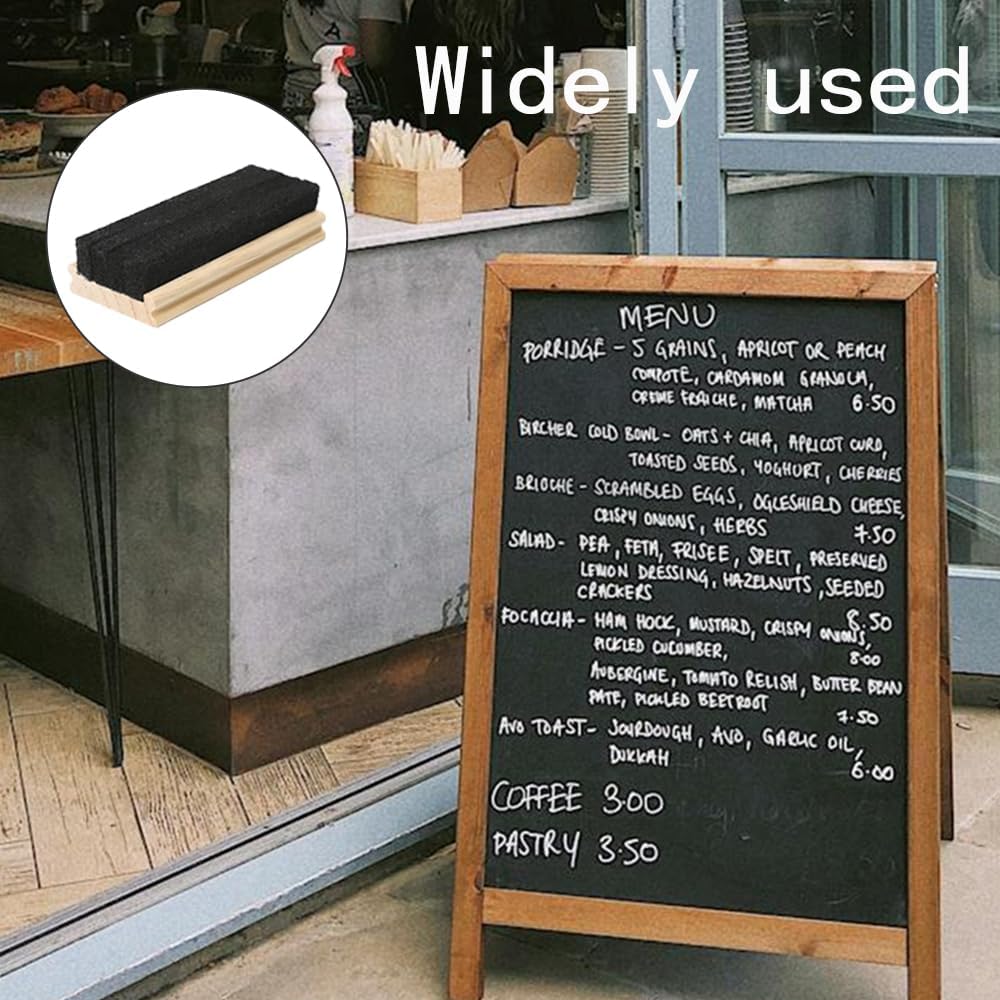 Widely used
MENU
PORRIDGE - 5 GRAINS, APRICOT OR PEACH
COMPOTE, CARDAMOM GRANOLA,
CREME FRAICHE, MATCHA 6.50
BIRCHER COLD BOWL - OATS + CHIA, APRICOT CURD,
TOASTED SEEDS, YOGHURT, CHERRIES
BRIOCHE - SCRAMBLED EGGS, OGLESHIELD CHEESE,
CRISPY ONIONS, HERBS 7.50
SALAD - PEA, FETA, FRISEE, SPELT, PRESERVED
LEMON DRESSING, HAZELNUTS, SEEDED
CRACKERS
8.50
FOCACCIA - HAM HOCK, MUSTARD, CRISPY ONIONS,
PICKLED CUCUMBER, 8.00
AUBERGINE, TOMATO RELISH, BUTTER BEAN
PATE, PICKLED BEETROOT
7.50
AVO TOAST - SOURDOUGH, AVO, GARLIC OIL,
DUKKAH 6.00
COFFEE 3.00
PASTRY 3.50